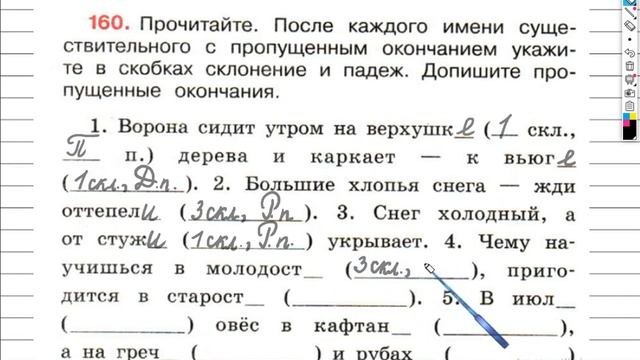 160. Прочитайте. После каждого имени суще-
ствительного с пропущенным окончанием укажи-
те в скобках склонение и падеж. Допишите про-
пущенные окончания.
1. Ворона сидит утром на верхушке (1 скл.,
П п.) дерева и каркает — к вьюге
(1скл., Д.п.). 2. Большие хлопья снега — жди
оттепели (3скл., Р.п.). 3. Снег холодный, а
от стужи (1скл., Р.п.) укрывает. 4. Чему на-
учишься в молодост_ (3скл., ____), приго-
дится в старост_ (________). 5. В июл_
(________) овёс в кафтан_ (________),
а на греч_ (________) и рубах_ (________